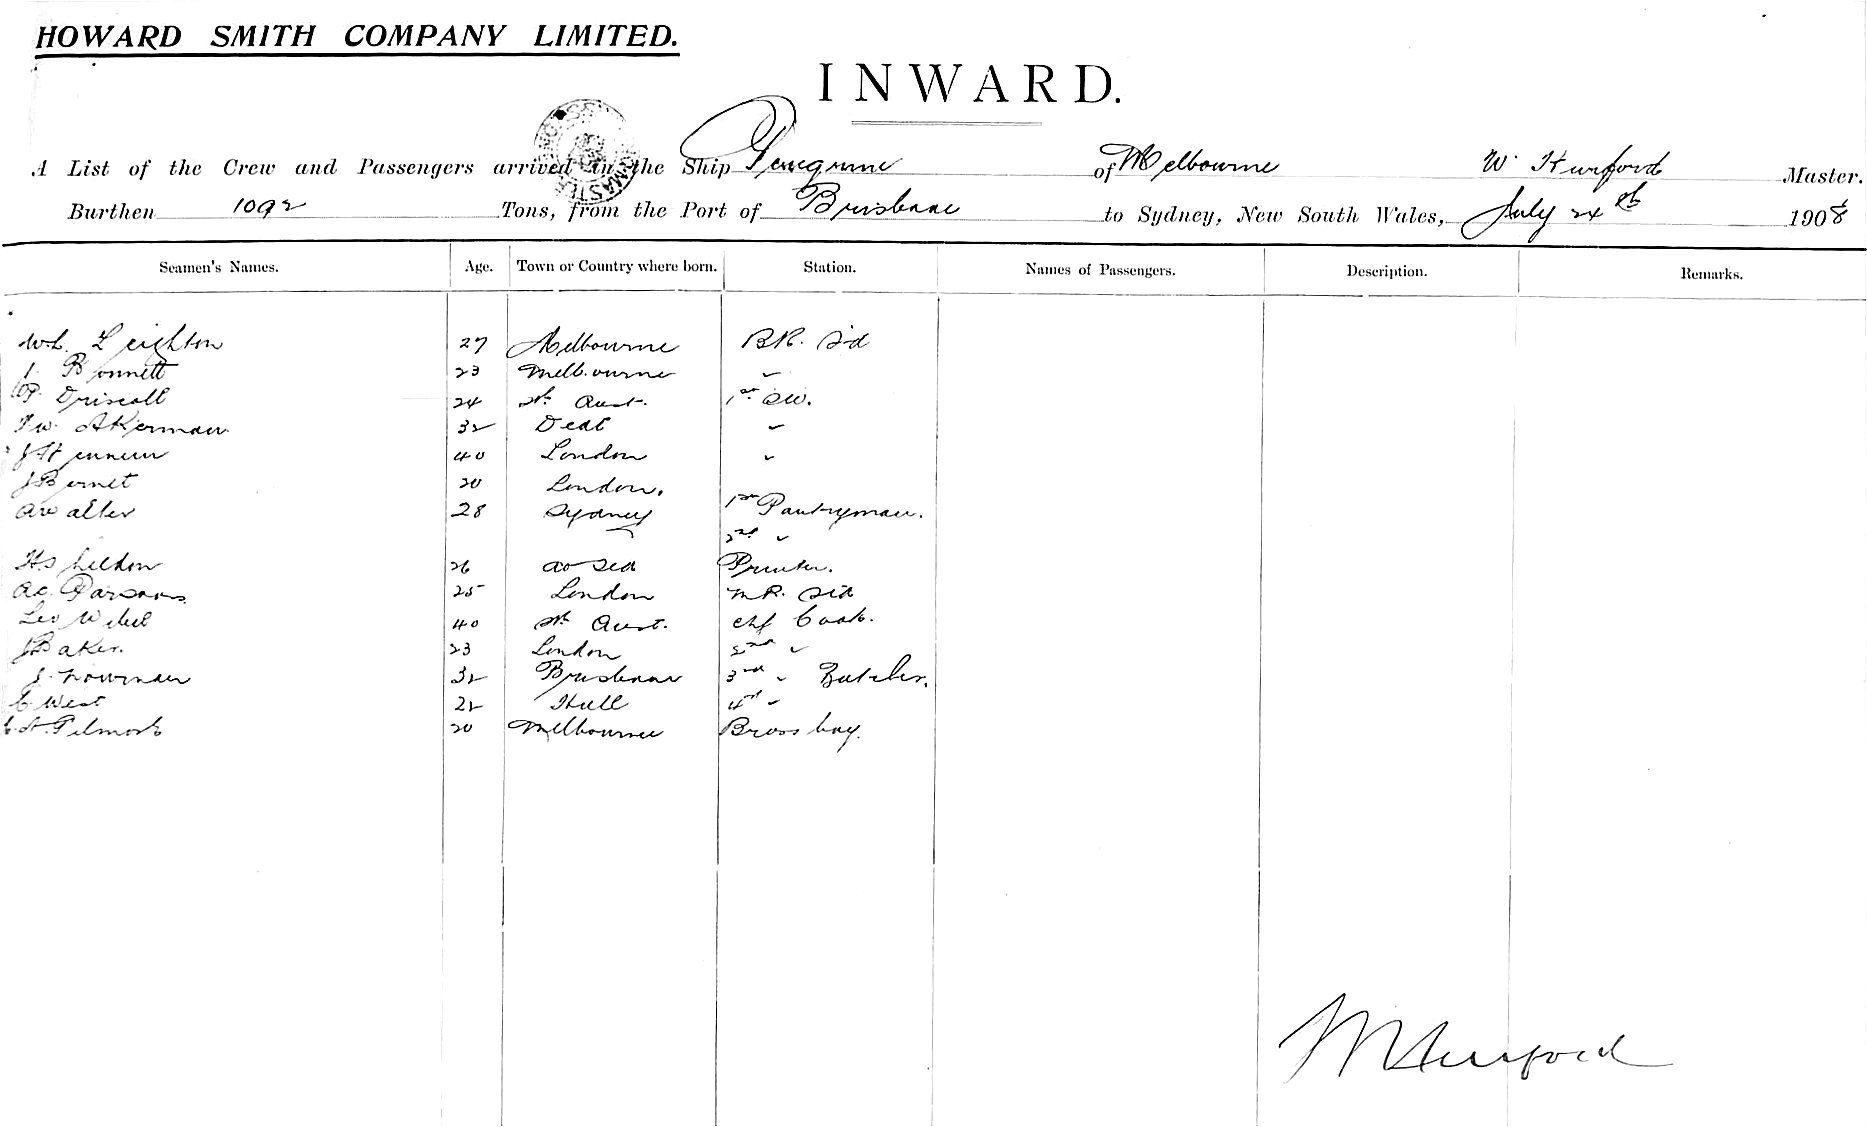 HOWARD SMITH COMPANY LIMITED.
INWARD.
A List of the Crew and Passengers arrived in the Ship Peregrine of Melbourne W. Hurford Master.
Burthen 1092 Tons, from the Port of Brisbane to Sydney, New South Wales, July 24th 1908
Seamen's Names. Age. Town or Country where born. Station. Names of Passengers. Description. Remarks.
Leighton 27 Melbourne BR. Sd
Bonnett 23 Melbourne "
P. Driscoll 24 Sth Aust. 1st SW.
F W. Akerman 32 Deal "
J 40 London "
J Bernet 20 London.
A Walter 28 Sydney 1st Pantryman.
2nd "
H Sheldon 26 at Sea Printer.
A C. Parsons 25 London MR. Std
Leo 40 Sth Aust. Chf Cook.
J Baker. 23 London 2nd "
J. Nowman 32 Brisbane 3rd " Butcher.
C West 22 Hull 4th "
C. H. Pilmork 20 Melbourne Brass boy.
W Hurford